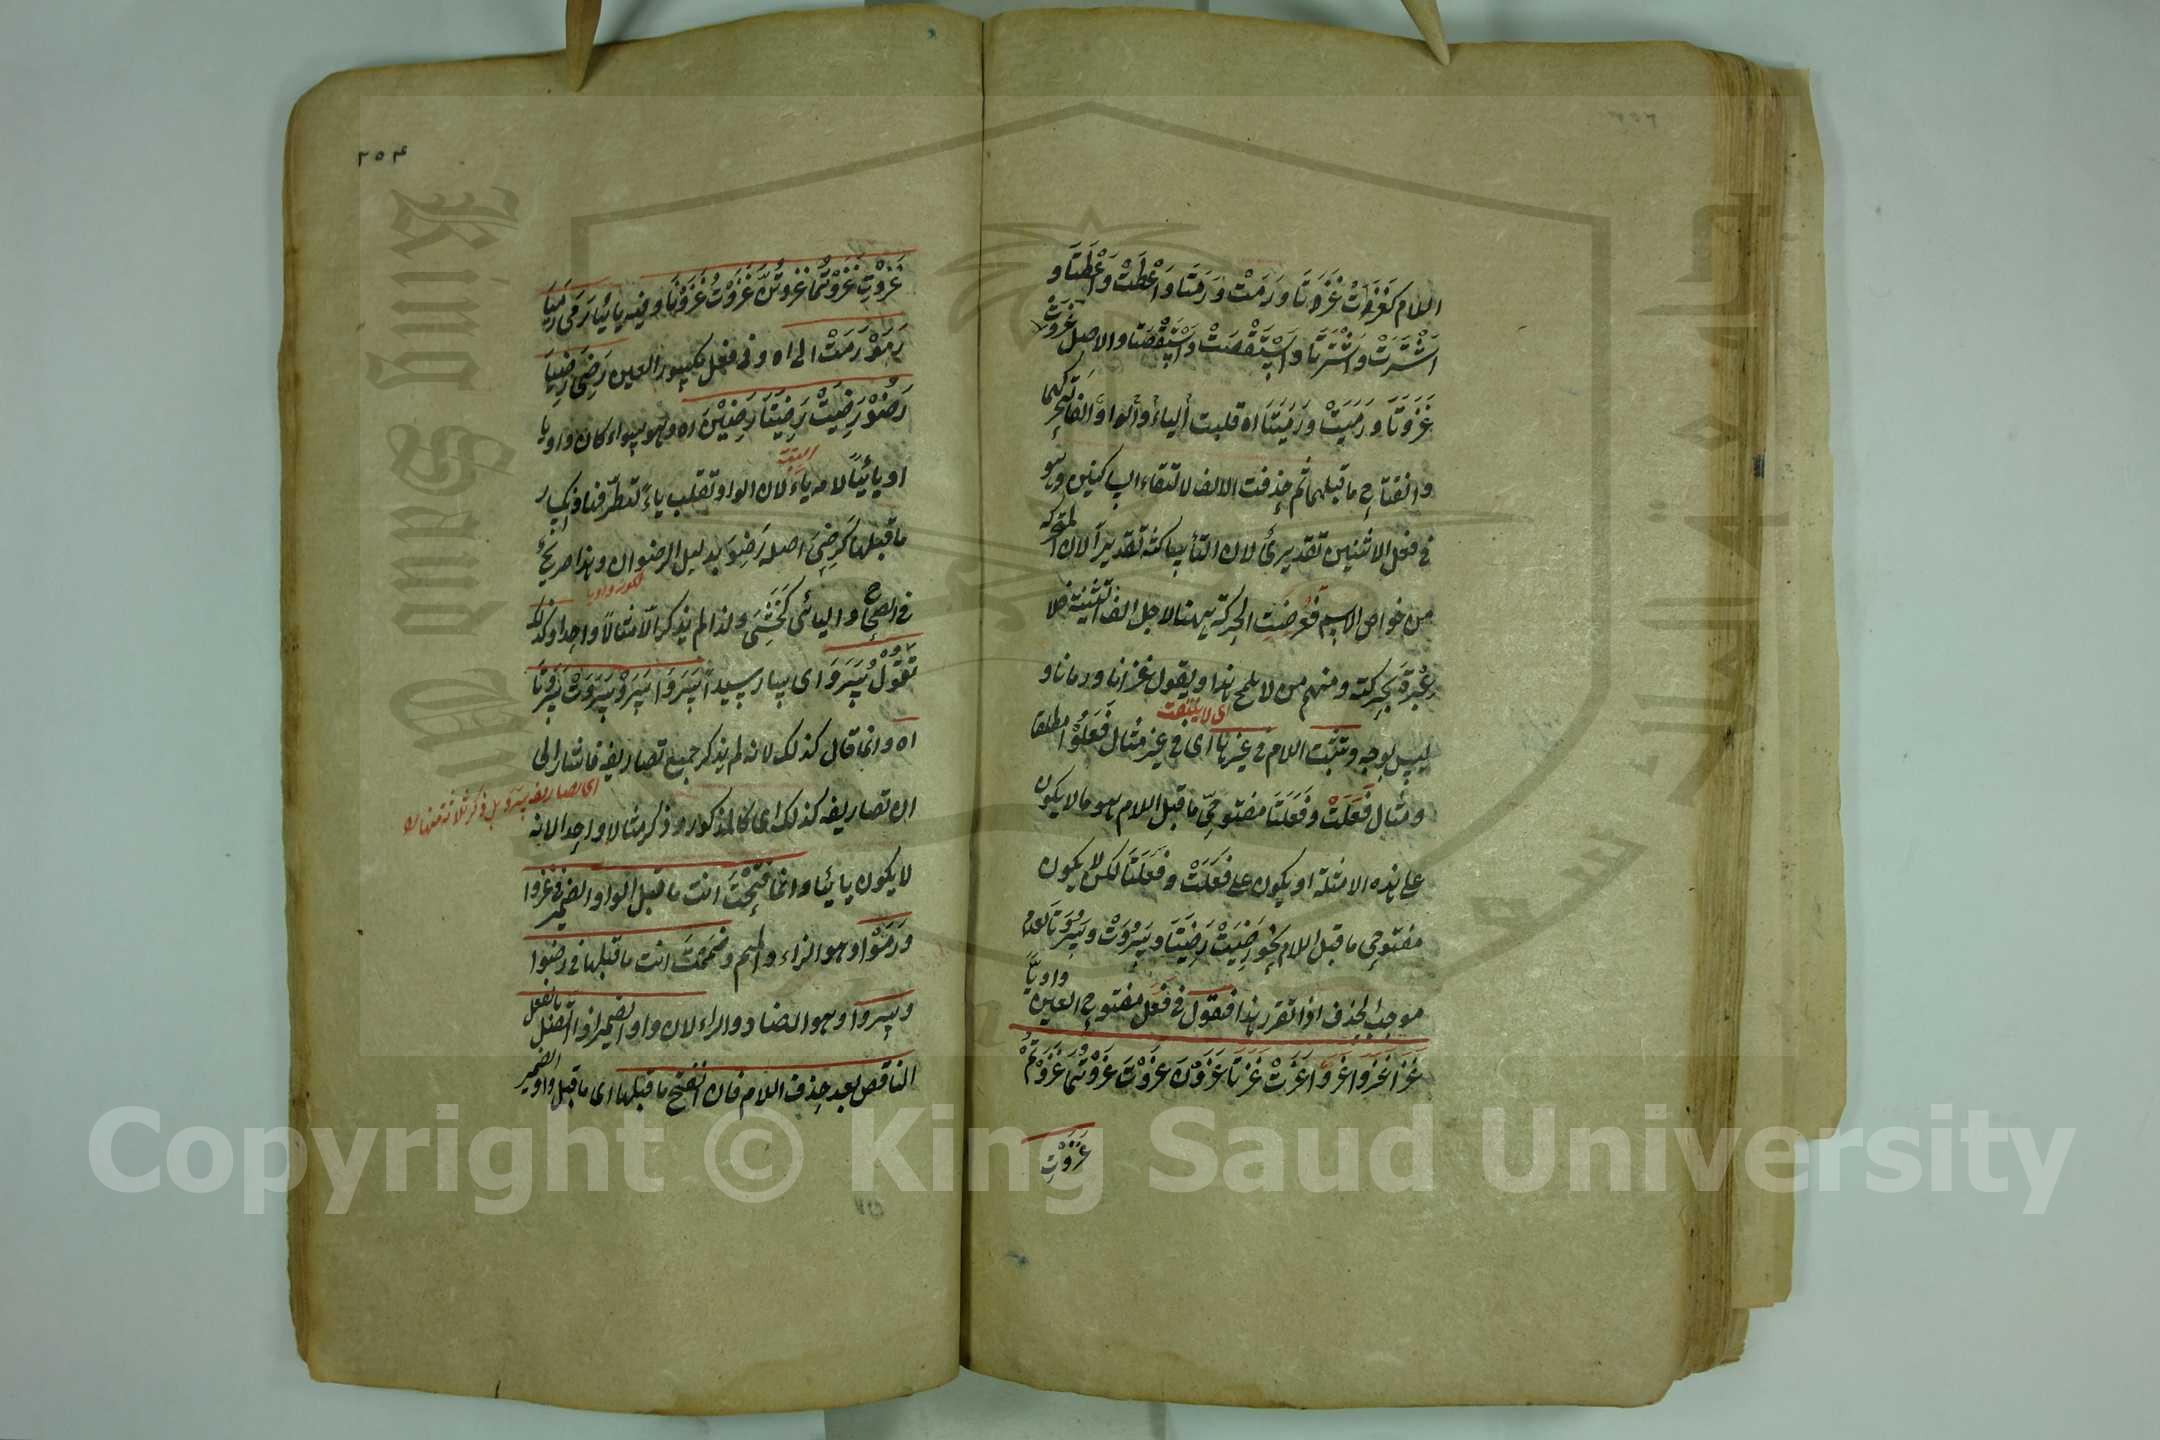 اللام كغَزَتْ غَزَتَا ورَمَتْ ورَمَتَا وَاَعْطَتْ وَاَعْطَتَا و
اشْتَرَتْ وَاشْتَرَتَا واسْتَقْصَتْ وَاسْتَقْصَتَا والاصل غَزَوَتْ
غَزَوَتَا ورَمَيَتْ ورَمَيَتَا اه قلبت الياء والواو الفا لتحركهما
وانفتاح ما قبلهما ثم حذفت الالف لالتقاء الساكنين وهو
فى فعل الاثنين تقديرى لان التاء ساكنة تقديرا لان المتحركة
من خواص الاسم فعُرضت الحركة ههنا لاجل الف التثنية فلا
عبرة بحركته ومنهم من لا يلمح هذا ويقول غزاتا ورماتا و
اى لا يلتفت
ليس بوجه وتثبت اللام فى غيرها اى فى غير مثال فَعَلُوْا مطلقا
ومثال فَعَلَتْ وفَعَلَتَا مفتوحى ما قبل اللام هو ما لا يكون
على هذه الامثلة او يكون على فَعَلَتْ وفَعَلَتَا لكن لا يكون
مفتوحى ما قبل اللام نحو رَضِيَتْ رَضِيَتَا وسَرُوَتْ وسَرُوَتَا لعدم
موجب الحذف اذا تقرر هذا فتقول فى فَعَلَ مفتوح العين واويًّا
غَزَا غَزَوَا غَزَوْا غَزَتْ غَزَتَا غَزَوْنَ غَزَوْتَ غَزَوْتُمَا غَزَوْتُمْ
غَزَوْتِ
٢٥٤
غَزَوْتِ غَزَوْتُمَا غزوتُنَّ غَزَوْتُ غَزَوْنَا وفيه يائيا رَمَى رَمَيَا
رَمَوْا رَمَتْ الى اه وفى فعل مكسور العين رَضِىَ رَضِيَا
رَضُوْا رَضِيَتْ رَضِيَتَا رَضِيْنَ اه وهو سواء كان واويا
البتة
او يائيًا لامه ياء لان الواو تقلب ياءً لتطرفها وانكسار
ما قبلها كرَضِىَ اصله رَضِوَ بدليل الرضوان وهذا صريح
فى الصحاح واليائى كخَشِىَ ولذا لم يذكر الا مثالا واحدا وكذلك
تقول سَرُوَ اى سار سيدا سَرُوَا سَرُوْا سَرُوَتْ سَرُوَتَا
اه وانما قال كذلك لانه لم يذكر جميع تصاريفه فاشار الى
ان تصاريفه كذلك اى كالمذكور وذكر مثالا واحدا لانه
لا يكون يائيا وانما فتحتَ انت ما قبل الواو الضمير فى غزوا
ورَمَوْا وهو الزاء والميم وضممتَ انت ما قبلها فى رضوا
وسروا وهو الضاد والراء لان واو الضمير اذا اتصل بالفعل
الناقص بعد حذف اللام فان انفتح ما قبلها اى ما قبل واو الضمير
Copyright © King Saud University
King Saud University